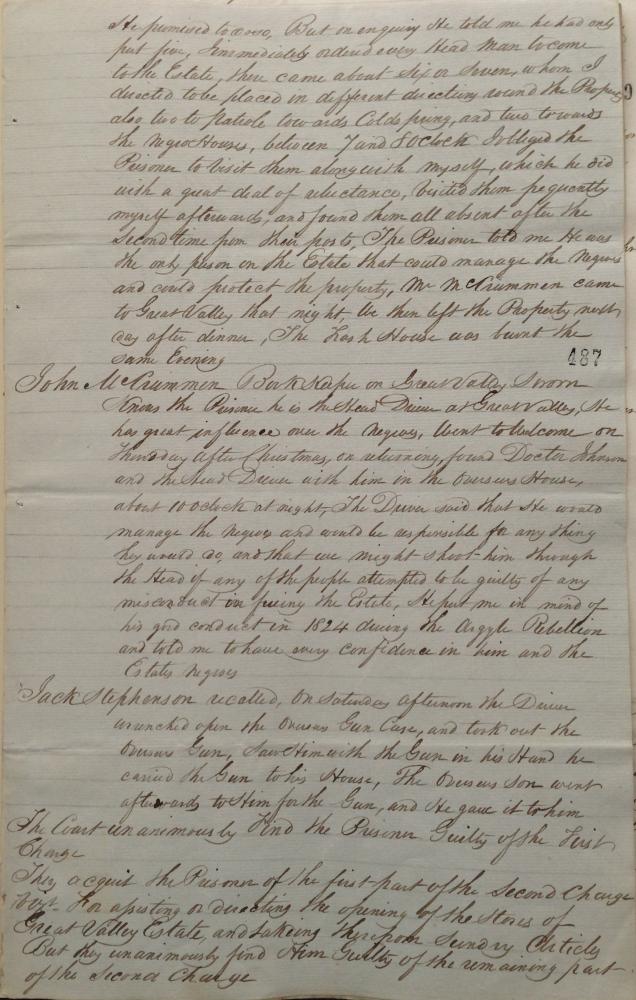 He promised to do so, But on enquiry He told me he had only
put five, I immediately ordered every Head Man to come
to the Estate, there came about Six or Seven, whom I
directed to be placed in different directions round the Property
also two to patrole towards Coldspring, and two towards
the Negro Houses, between 7 and 8 OClock I obliged the
Prisoner to Visit them along with myself, which he did
with a great deal of reluctance, Visited them frequently
myself afterwards, and found them all absent after the
Second time from their posts, The Prisoner told me He was
the only person on the Estate that could manage the Negroes
and could protect the property, Mr McCrummen came
to Great Valley that night, We then left the Property next
day after dinner, The Trash House was burnt the
Same Evening
487
John McCrummen Book Keeper on Great Valley Sworn
Knows the Prisoner he is the Head Driver at Great Valley, He
has great influence over the Negroes, Went to Welcome on
Thursday after Christmas, on returning, found Doctor Johnson
and the Head Driver with him in the Overseers House,
about 10 OClock at night, The Driver said that He would
manage the Negroes and would be responsible for any thing
they would do, and that we might shoot him through
the Head if any of the people attempted to be guilty of any
misconduct in fireing the Estate, He put me in mind of
his good conduct in 1824 during the Argyle Rebellion
and told me to have every confidence in him and the
Estates Negroes
Jack Stephenson recalled, On Saturday afternoon the Driver
wrenched open the Overseers Gun Case, and took out the
Overseers Gun, Saw Him with the Gun in his Hand he
carried the Gun to his House, The Overseers Son went
afterwards to Him for the Gun, and He gave it to him
The Court unanimously Find the Prisoner Guilty of the First
Charge
They acquit the Prisoner of the first part of the Second Charge
Viz. For assisting or directing the opening of the Stores of
Great Valley Estate, and takeing therefrom Sundry Articles
But they unanimously find Him Guilty of the remaining part
of the Second Charge